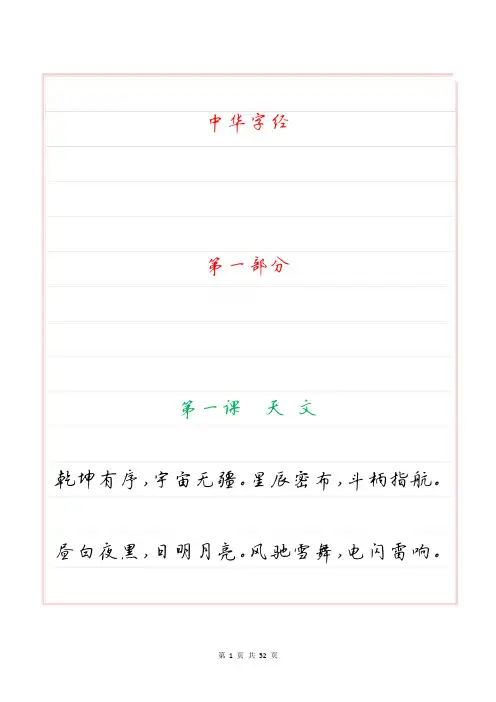 中华字经
第一部分
第一课 天 文
乾坤有序,宇宙无疆。星辰密布,斗柄指航。
昼白夜黑,日明月亮。风驰雪舞,电闪雷响。
第 1 页 共 32 页